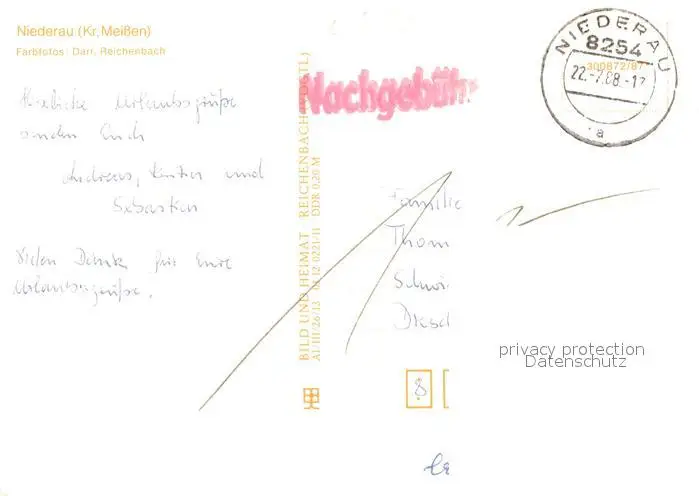 Niederau (Kr. Meißen)
Farbfotos: Darr, Reichenbach
Herzliche Urlaubsgrüße
senden Euch
Andreas, und
Sebastian
Vielen Dank für Eure
Urlaubsgrüße.
BILD UND HEIMAT REICHENBACH (VOGTL)
A1/III/26/13 01 12 0221/11 DDR 0,20 M
Nachgebühr
NIEDERAU
8254
300872/87
22.-7.88.-17
a
Familie
Thom
Schwi
Dresd
8
privacy protection
Datenschutz